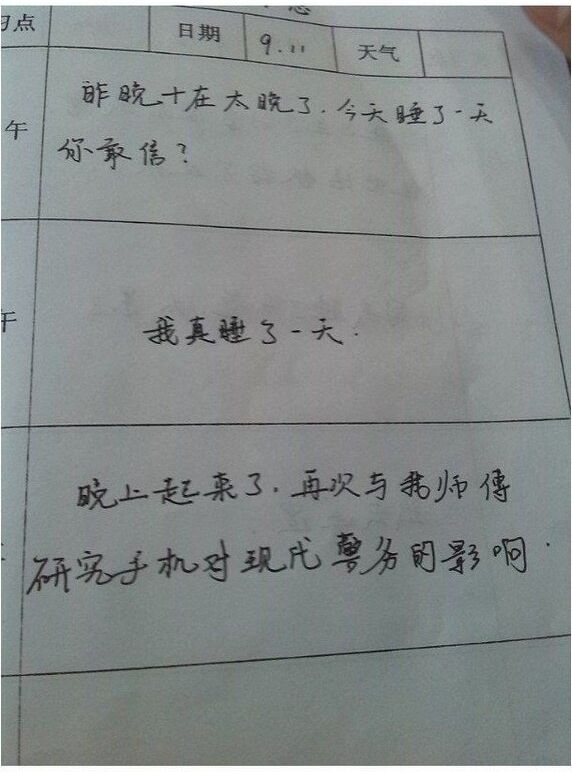 习点 日期 9.11 天气
午
昨晚十在太晚了.今天睡了一天
你敢信?
午
我真睡了一天.
晚上起来了.再次与我师傅
研究手机对现代警务的影响.